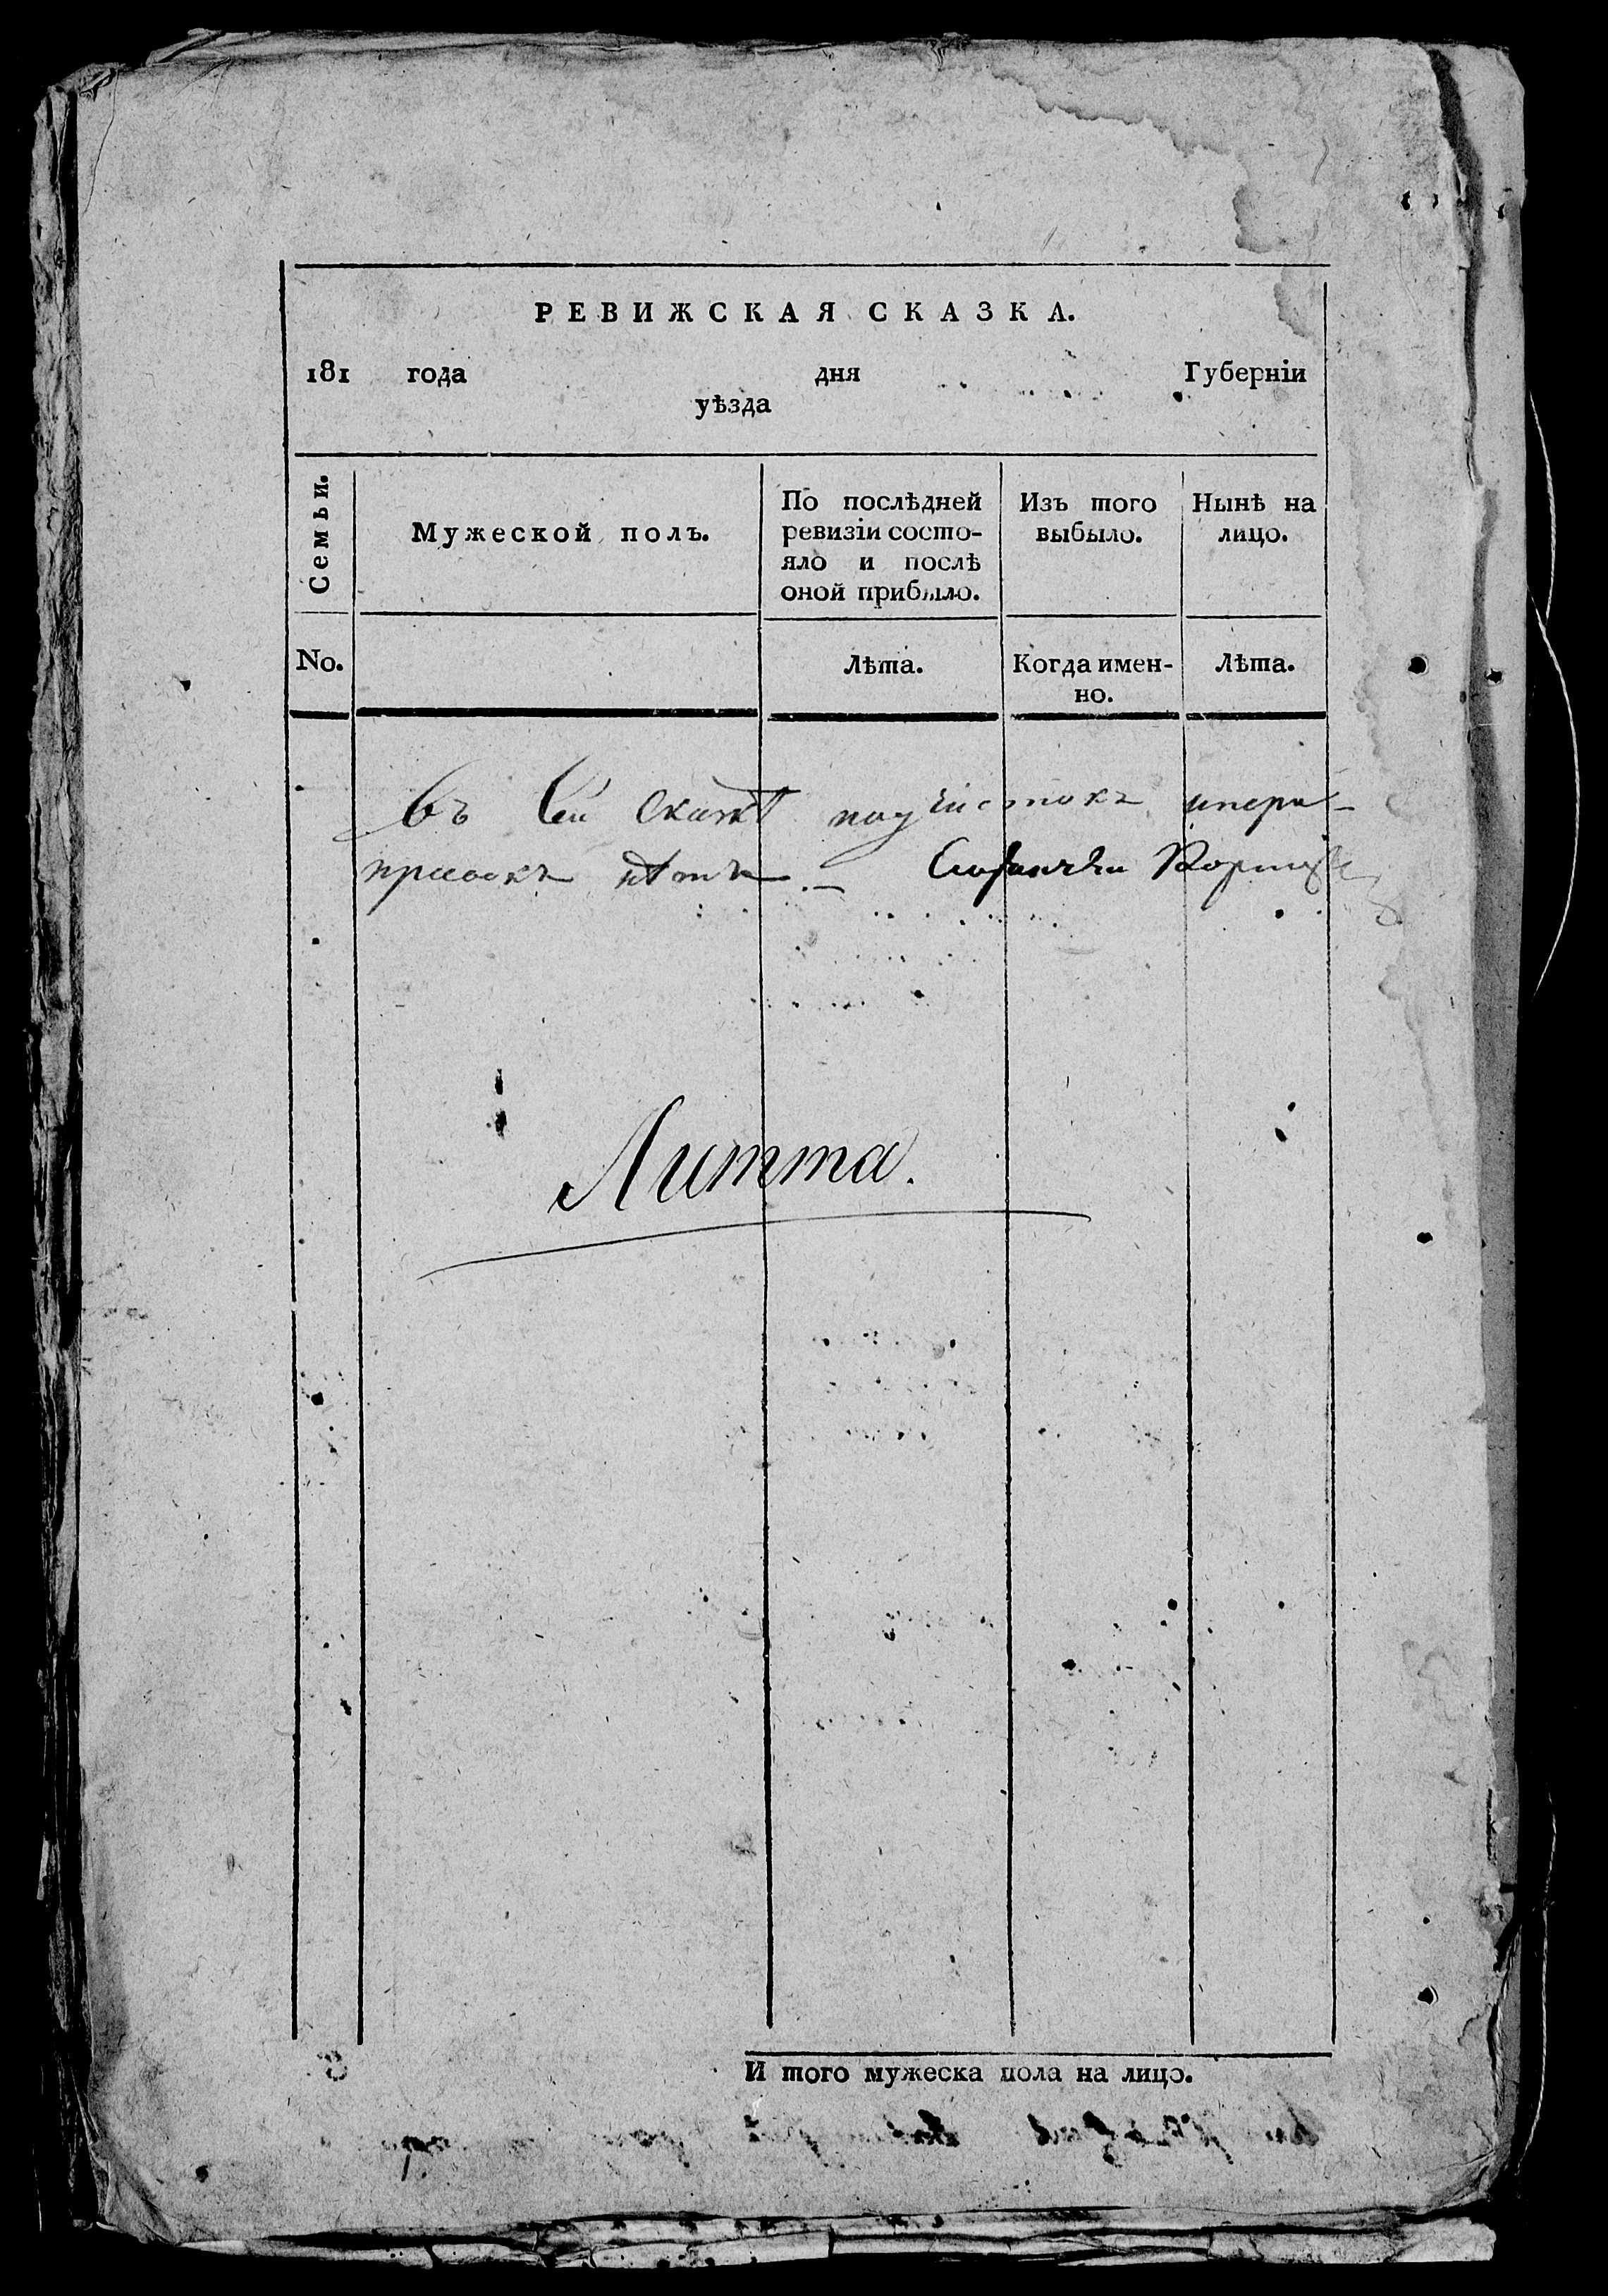 РЕВИЖСКАЯ СКАЗКА.
181 года дня Губерніи
уѣзда
Семьи.
Мужеской полъ.
По послѣдней
ревизіи состо-
яло и послѣ
оной прибыло.
Изъ того
выбыло.
Нынѣ на
лицо.
No.
Лѣта.
Когда имен-
но.
Лѣта.
Въ Сей Сказкѣ подчистокъ ипере-
правокъ нѣтъ.—
Литта.
И того мужеска пола на лицо.